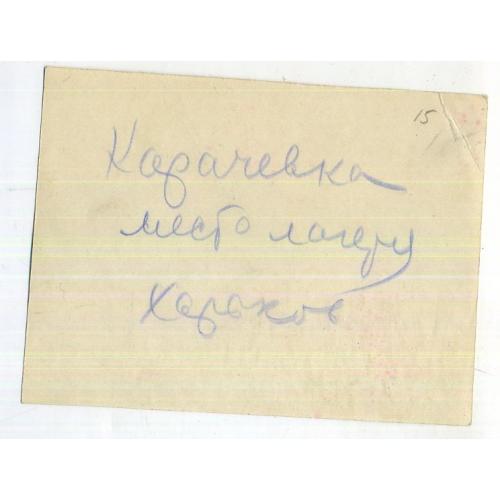 15
Карачевка
место лагеря
Харьков